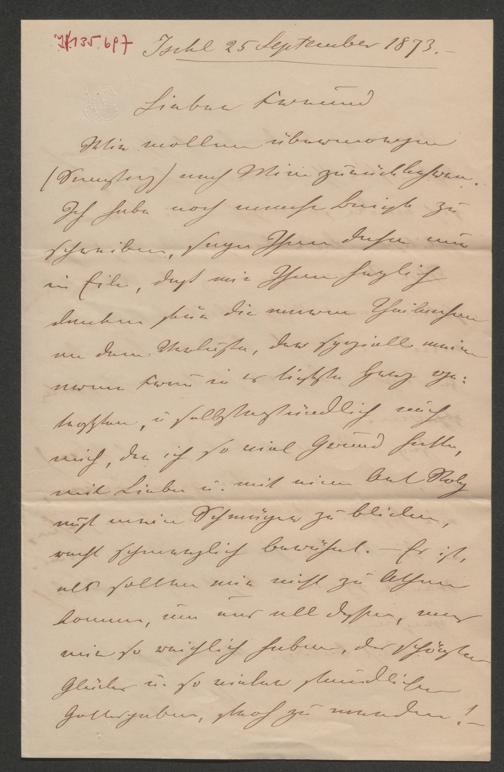 IN 135.697
Ischl 25 September 1873.-
Lieber Freund
Wir wollen übermorgen
(Samstag) nach Wien zurückkehren.
Ich habe noch manche Briefe zu
schreiben, sage Ihnen daher nur
in Eile, daß wir Ihnen herzlich
danken für die warme Theilnahme
an dem Verluste, der speziell meine
arme Frau in's tiefste Herz ge:
troffen, u selbstverständlich auch
mich, der ich so viel Grund hatte,
mit Liebe u. mit einer Art Stolz
auf meine Schwäger zu blicken,
recht schmerzlich berührt. - Es ist,
als sollten wir nicht zu Athem
kommen, um uns all dessen, was
wir so reichlich haben, des schönsten
Glückes u. so vieler freundlicher
Gottesgaben, froh zu werden! -